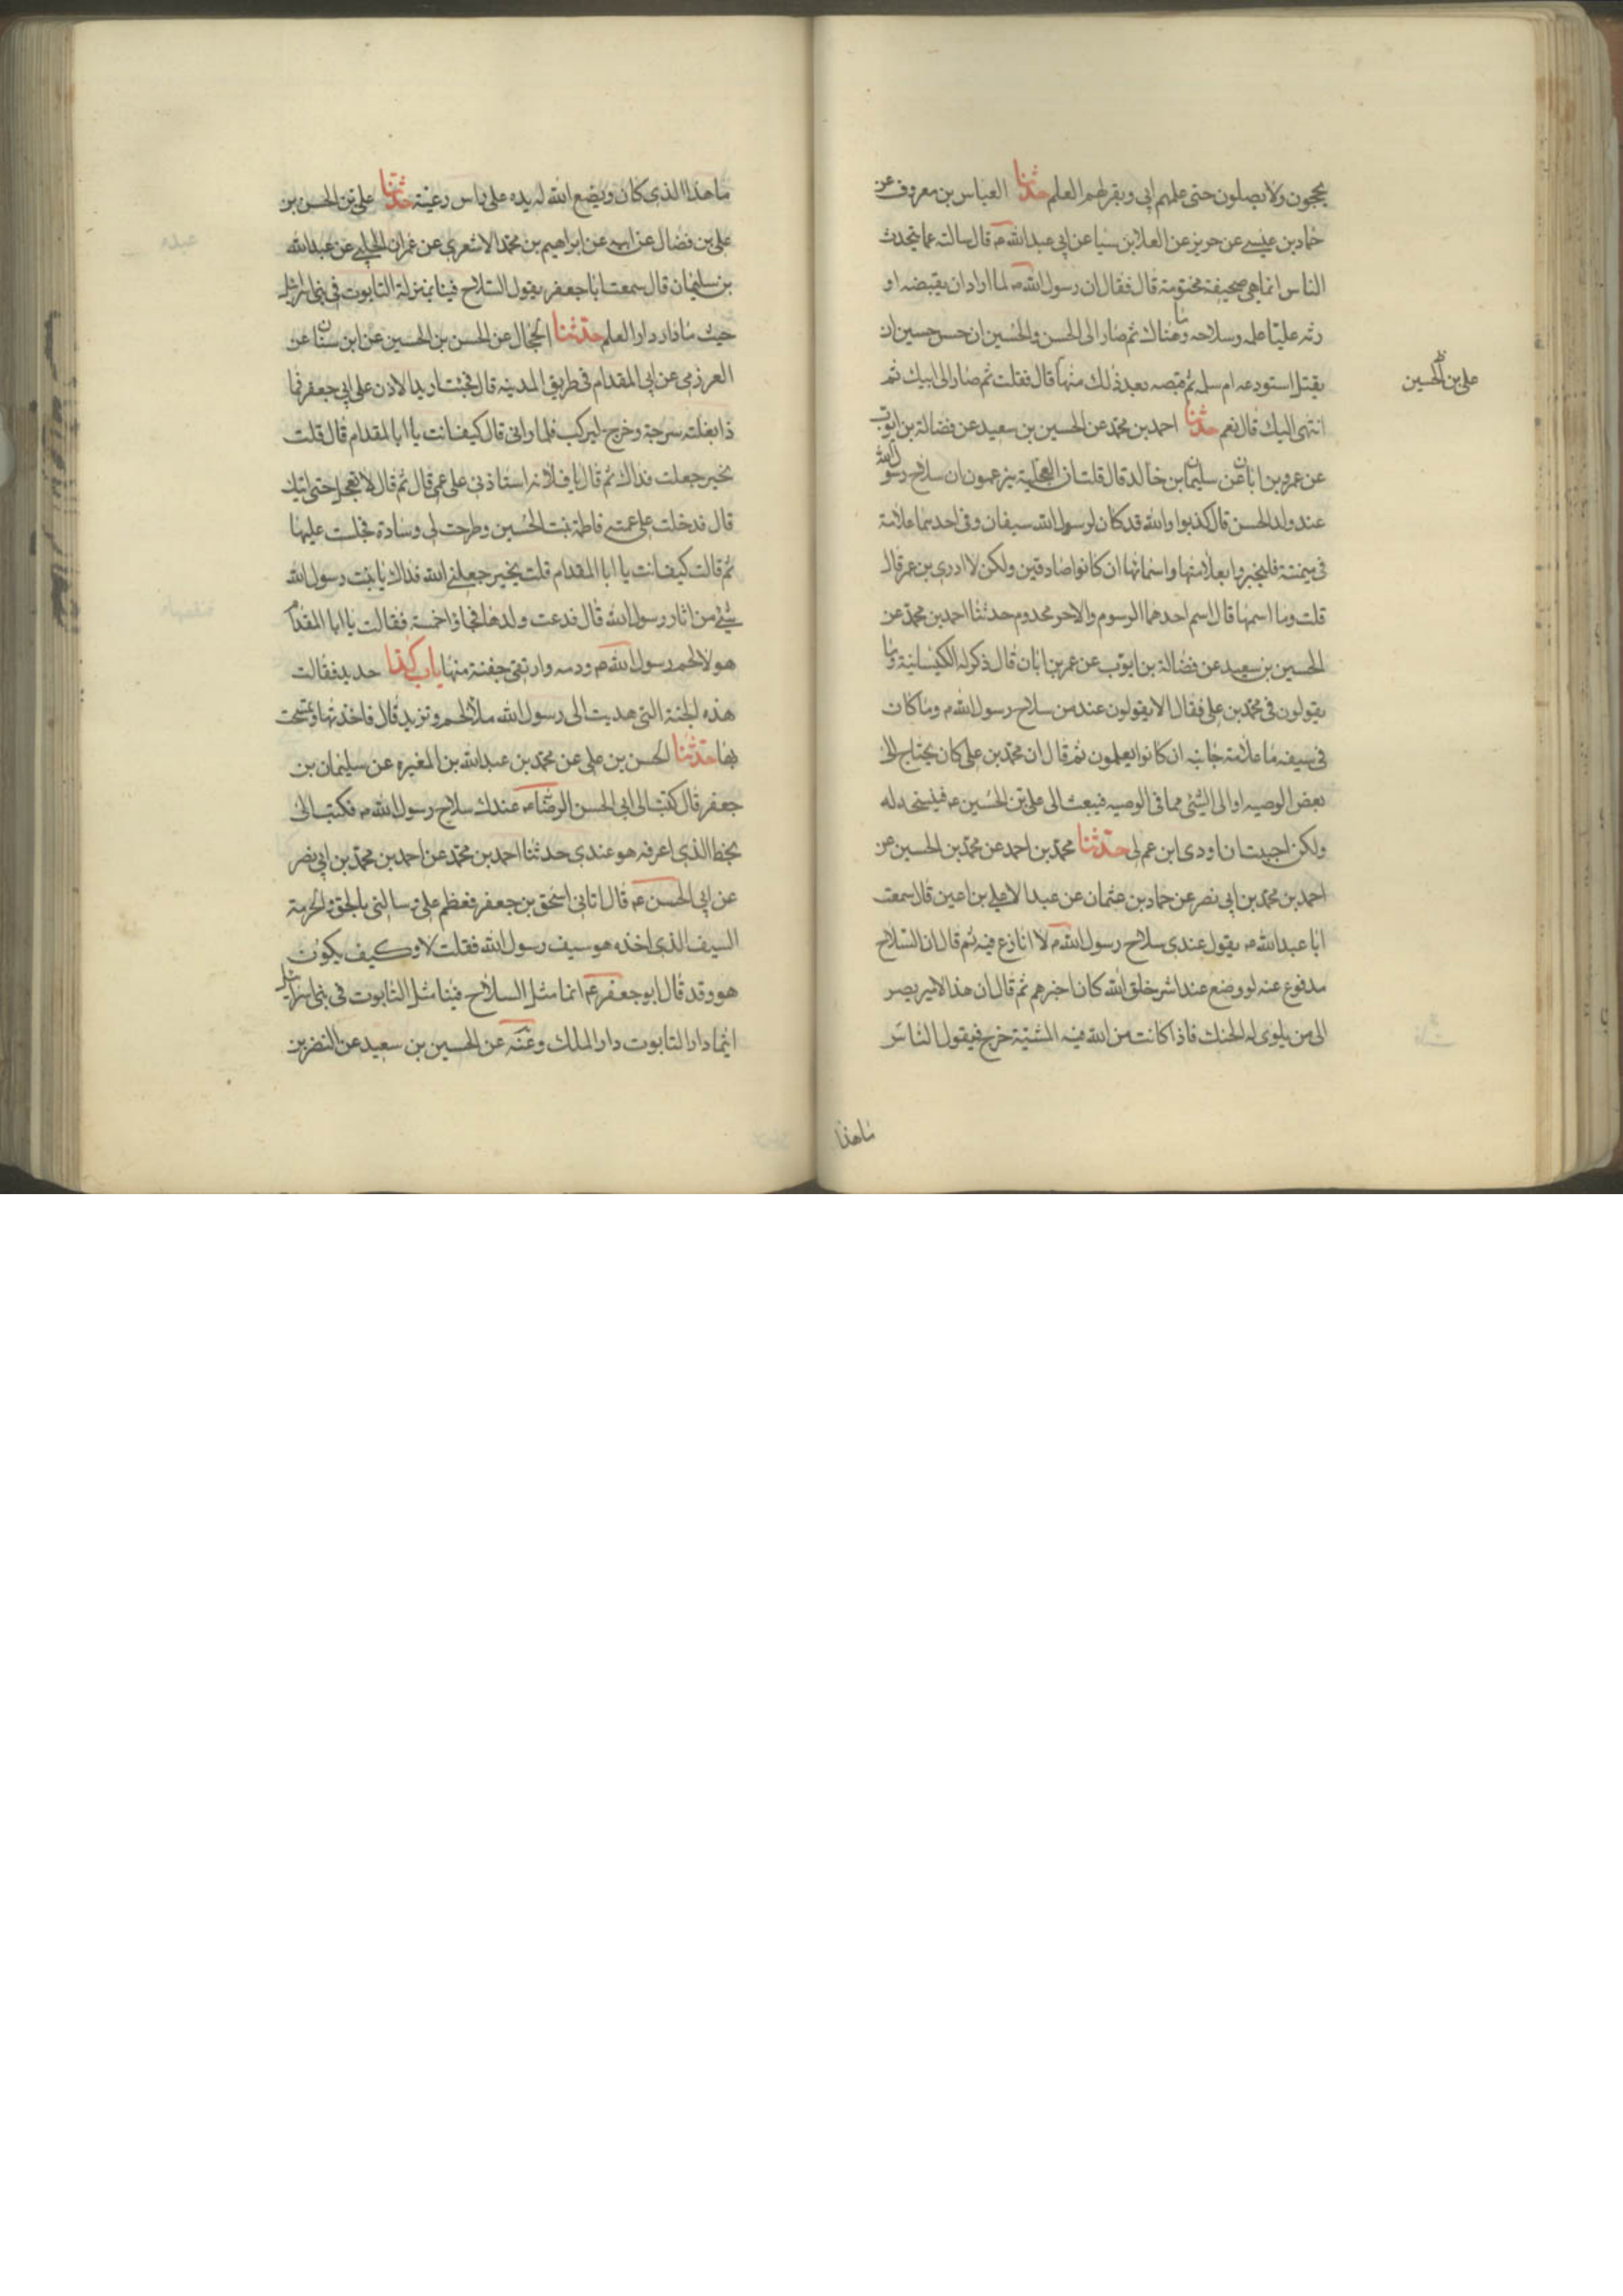 يحجون ولا يصلون حتى علمهم ابي وبقر لهم العلم حدثنا العباس بن معروف عن
حماد بن عيسى عن حريز عن العلا بن سيا عن ابي عبدالله م قال سالته عما يتحدث
الناس انما هي صحيفة مختومة قال فقال ان رسول الله م لما اراد ان يقبضه او
رثه عليا علمه وسلاحه وما هناك ثم صار الى الحسن والحسين ان حسن حسين ان
يقتل استودعه ام سلمه ثم قبضه بعد ذلك منها قال فقلت ثم صار الى ابيك ثم
علي بن الحسين
انتهى اليك قال نعم حدثنا احمد بن محمد عن الحسين بن سعيد عن فضالة بن ايوب
عن عمرو بن ابان عن سليمان بن خالد قال قلت ان العجلية يزعمون ان سلاح رسول الله
عند ولد الحسن قال كذبوا والله قد كان لرسول الله سيفان وفي احدهما علامة
في ميمنته فليخبروا بعلامتها واسمائها ان كانوا صادقين ولكن لا ادري بن عم قال
قلت وما اسمها قال اسم احدهما الرسوم والاخر مخدوم حدثنا احمد بن محمد عن
الحسين بن سعيد عن فضالة بن ايوب عن عمر بن ابان قال ذكر له الكيسانية وما
يقولون في محمد بن علي فقال الا يقولون عند من سلاح رسول الله م وما كان
في سيفه ما علامة جانبه ان كانوا يعلمون ثم قال ان محمد بن علي كان يحتاج الى
بعض الوصيه او الى الشئ مما في الوصيه فيبعث الى علي بن الحسين عه فينسخه له
ولكن احببت ان اودى ابن عم لي حدثنا محمد بن احمد عن محمد بن الحسين عن
احمد بن محمد بن ابي نصر عن حماد بن عثمان عن عبد الاعلى بن اعين قال سمعت
ابا عبدالله م يقول عندي سلاح رسول الله م لا انازع فيه ثم قال ان السلاح
مدفوع عنه لو وضع عند اشر خلق الله كان اخيرهم ثم قال ان هذا الامير يصير
الى من يلوى له الحنك فاذا كانت من الله فيه المشية خرج فيقول الناس
ما هذا
ما هذا الذي كان ويضع الله له يده على راس رعيته حدثنا علي بن الحسن بن
علي بن فضال عن ابيه عن ابراهيم بن محمد الاشعري عن عمران الحلبي عن عبدالله
بن سليمان قال سمعت ابا جعفر يقول السلاح فينا بمنزلة التابوت في بني اسرائيل
حيث ما دار دار العلم حدثنا الحجال عن الحسن بن الحسين عن ابن سنان عن
العرزمي عن ابي المقدام في طريق المدينه قال فجئت اريد الاذن على ابي جعفر فا
ذا بغلته مسرجة وخرج ليركب فلما راني قال كيف انت يا ابا المقدام قال قلت
بخير جعلت فداك ثم قال يا فلانه استاذني على عمتي قال ثم قال لا تعجل حتى اتيك
قال فدخلت على عمته فاطمة بنت الحسين وطرحت لي وسادة فجلست عليها
ثم قالت كيف انت يا ابا المقدام قلت بخير جعلني الله فداك يا بنت رسول الله
شئ من اثار رسول الله قال فدعت ولدها فجاؤا خمسة فقالت يا ابا المقدام
هولا لحم رسول الله م ودمه وارتني جفنة منها باب كذا حديد فقالت
هذه الجفنة التي هديت الى رسول الله ملا لحم وثريد قال فاخذتها وتمسحت
بها حدثنا الحسن بن علي عن محمد بن عبدالله بن المغيره عن سليمان بن
جعفر قال كتبت الى ابي الحسن الرضا عه عندك سلاح رسول الله م فكتب الى
بخط الذي اعرفه هو عندي حدثنا احمد بن محمد عن احمد بن محمد بن ابي نصر
عن ابي الحسن عه قال اتاني اسحق بن جعفر فعظم علي وسالني بالحق والحرمة
السيف الذي اخذه هو سيف رسول الله فقلت لا وكيف يكون
هو وقد قال ابو جعفر عم انما مثل السلاح فينا مثل التابوت في بني اسرائيل
اينما دار التابوت دار الملك وعنه عن الحسين بن سعيد عن النضر بن